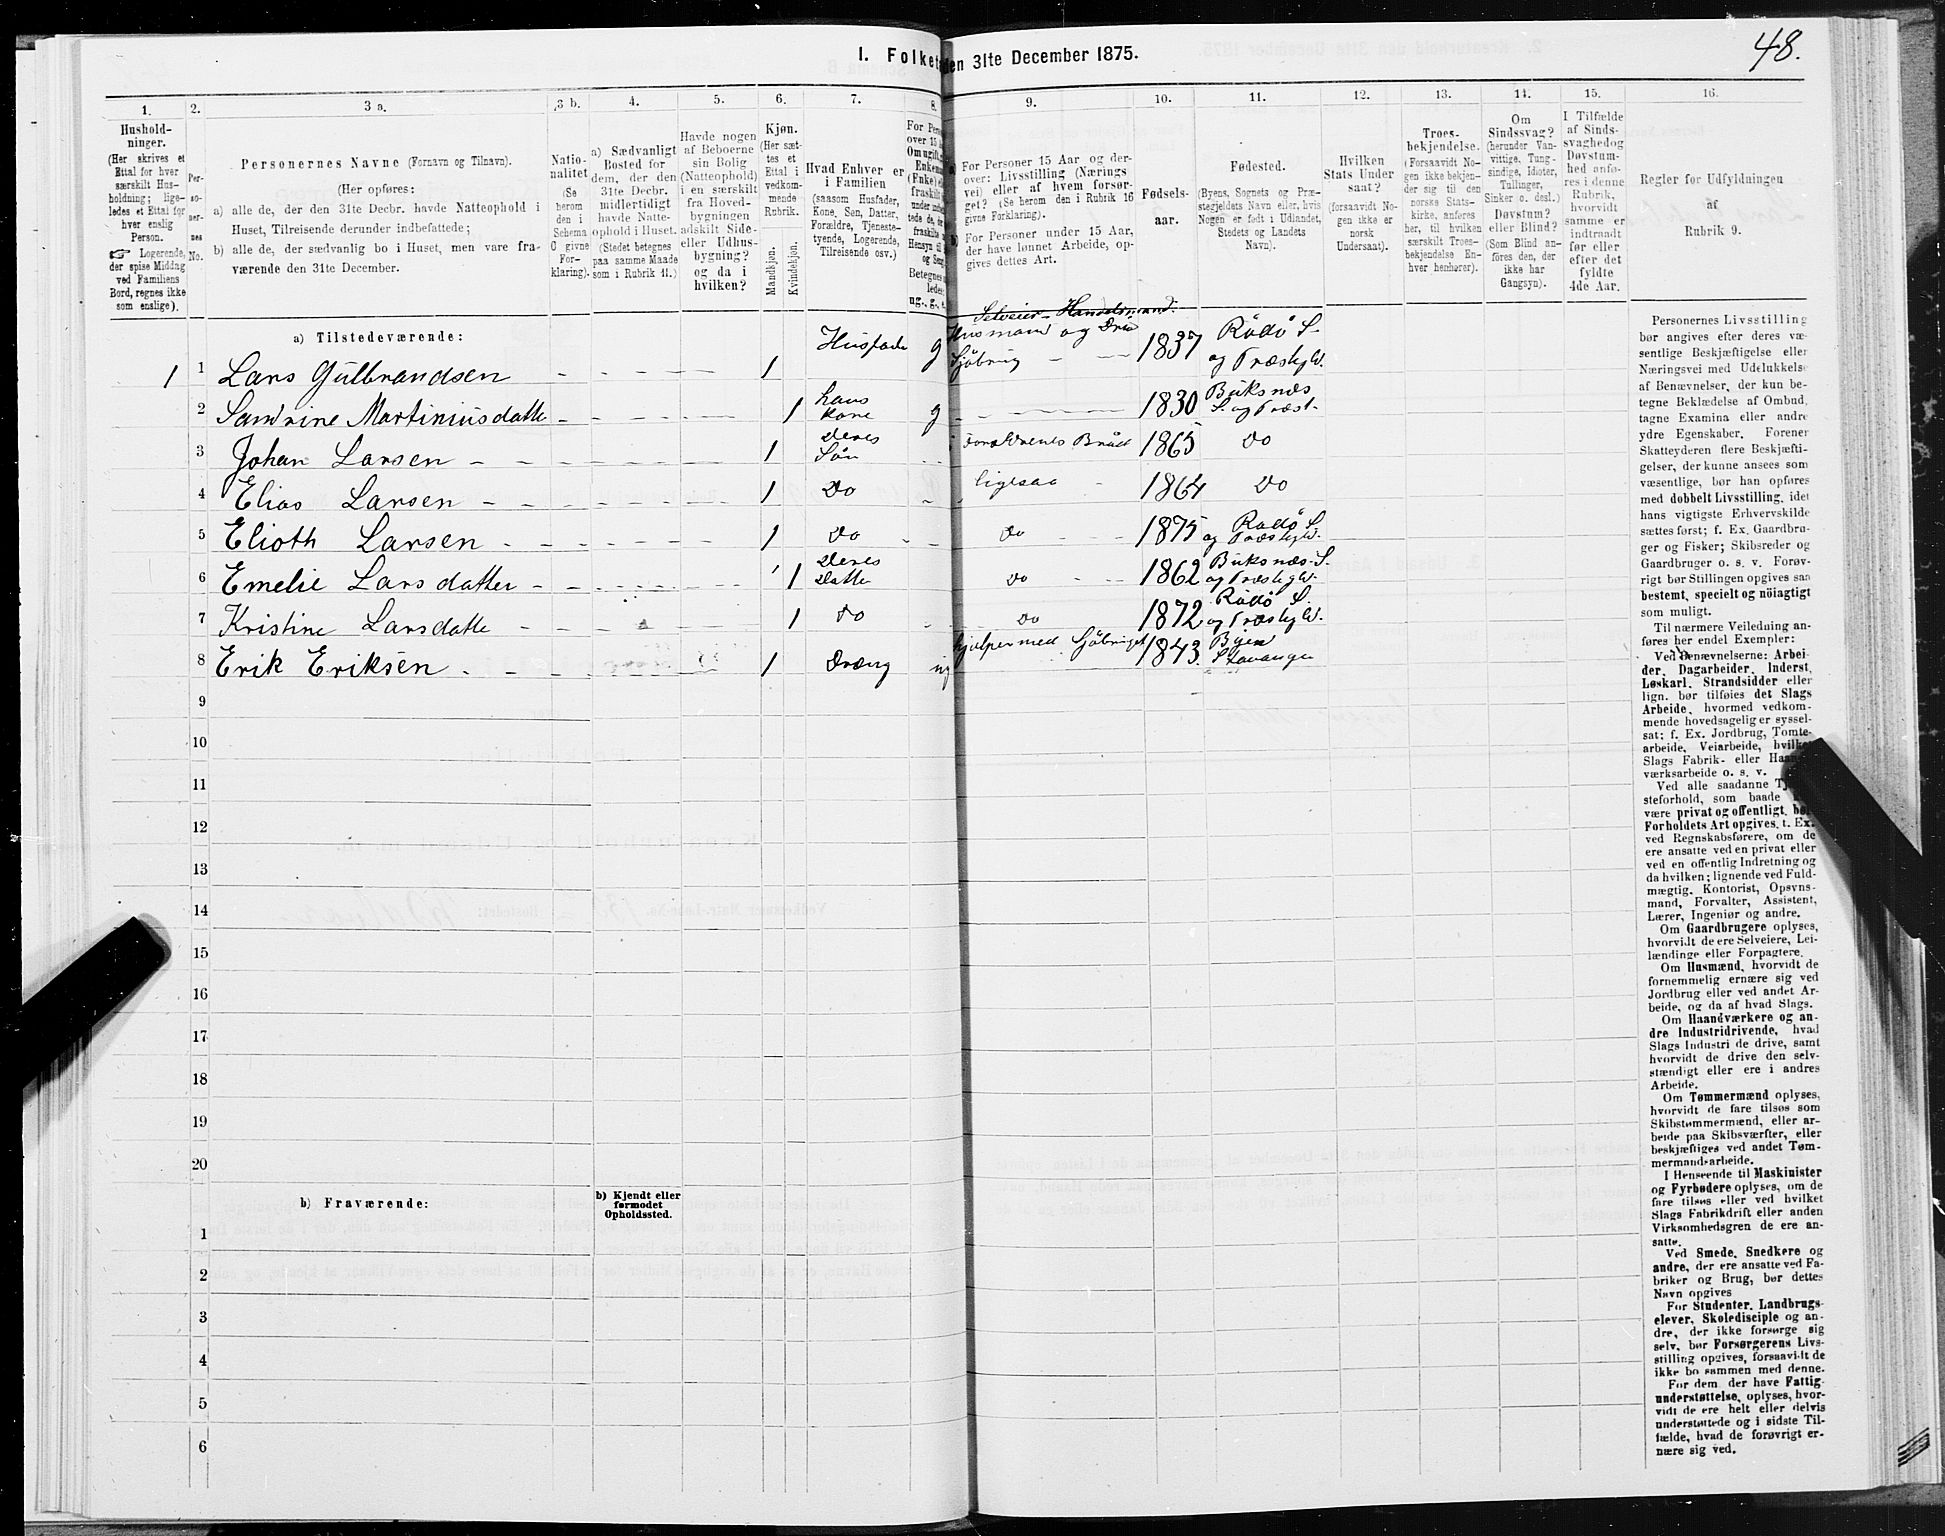 48.
I. Folket
den 31te December 1875.
1.
2.
3 a.
3 b.
4.
5.
6.
7.
8.
9.
10.
11.
12.
13.
14.
15.
16.
Hushold-
ninger.
(Her skrives et
Ettal for hver
særskilt Hus-
holdning; lige-
ledes et Ettal for
hver enslig
Person.
☞ Logerende,
der spise Middag
ved Familiens
Bord, regnes ikke
som enslige).
Per-
so-
ner-
nes
No.
Personernes Navne (Fornavn og Tilnavn).
(Her opføres:
a) alle de, der den 31te Decbr. havde Natteophold i
Huset, Tilreisende derunder indbefattede;
b) alle de, der sædvanlig bo i Huset, men vare fra-
værende den 31te December.
Natio-
nalitet
(Se
herom
den i
Schema
C givne
For-
klaring).
a) Sædvanligt
Bosted for
dem, der den
31te Decbr.
midlertidigt
havde Natte-
ophold i Huset.
(Stedet betegnes
paa samme Maade
som i Rubrik 11.)
Havde nogen
af Beboerne
sin Bolig
(Natteophold)
i en særskilt
fra Hoved-
bygningen
adskilt Side-
eller Udhus-
bygning?
og da i
hvilken?
Kjøn.
(Her sæt-
tes et
Ettal i
vedkom-
mende
Rubrik.
Mandkjøn.
Kvindekjøn.
Hvad Enhver er
i Familien
(saasom Husfader,
Kone, Søn, Datter,
Forældre, Tjeneste-
tyende, Logerende,
Tilreisende osv.)
For Pers
over 15 A
Om ugift,
Enkem
(Enke) e
fraskilt
under
tede de, de
fraskilte
Hensyn til
og Seng
Betegnes
ledes:
ug., g., e
a)
For Personer 15 Aar og der-
over: Livsstilling (Nærings
vei) eller af hvem forsør-
get? (Se herom den i Rubrik 16
givne Forklaring).
b)
For Personer under 15 Aar,
der have lønnet Arbeide, op-
gives dettes Art.
Fødsels-
aar.
Fødested.
(Byens, Sognets og Præ-
stegjeldets Navn eller, hvis
Nogen er født i Udlandet,
Stedets og Landets
Navn).
Hvilken
Stats Under
saat?
(forsaavidt No-
gen ikke er
norsk
Undersaat).
Troes-
bekjendelse.
(Forsaavidt No-
gen ikke bekjen-
der sig til den
norske Stats-
kirke, anføres
her, til hvilken
særskilt Troes-
bekjendelse En-
hver henhører).
Om
Sindssvag?
(herunder Van-
vittige, Tung-
sindige, Idioter,
Tullinger,
Sinker o. desl.)
Døvstum?
eller Blind?
(Som Blind an-
føres den, der
ikke har
Gangsyn).
I Tilfælde
af Sinds-
svaghed og
Døvstum-
hed anfø-
res i denne
Rubrik,
hvorvidt
samme er
indtraadt
før eller
efter det
fyldte
4de Aar.
Regler for Udfyldningen
af
Rubrik 9.
a) Tilstedeværende:
Selveier Handelsmand.
1 1 Lars Gulbrandsen 1 Husfade g Husmand og
Sjöbrug 1837 Rödö S.
og Præstegld.
2 Sandrine Martiniusdatte 1 hans
Kone g 1830 Buksnæs
S. og Præst.
3 Johan Larsen 1 Deres
Sön Forældrenes Bröd 1865 Do
4 Elias Larsen 1 Do ligesaa 1864 Do
5 Elioth Larsen 1 Do Do 1875 Rödö S.
og Præstegld.
6 Emelie Larsdatter 1 Deres
Datte Do 1862 Buksnæs S.
og Præstegld.
7 Kristine Larsdatte 1 Do Do 1872 Rödö S.
og Præstegld.
8 Erik Eriksen 1 Dræng ug hjelper med Sjöbruget 1843 Byen
Stavanger
9
10
11
12
13
14
15
16
17
18
19
20
b) Fraværende:
b) Kjendt eller
formodet
Opholdssted.
1
2
3
4
5
6
Personernes Livsstilling
bør angives efter deres væ-
sentlige Beskjæftigelse eller
Næringsvei med Udelukkelse
af Benævnelser, der kun be-
tegne Beklædelse af Ombud,
tagne Examina eller andre
ydre Egenskaber. Forener
Skatteyderen flere Beskjæfti-
gelser, der kunne ansees som
væsentlige, bør han opføres
med dobbelt Livsstilling, idet
hans vigtigste Erhvervskilde
sættes først; f. Ex. Gaardbru-
ger og Fisker; Skibsreder og
Gaardbruger o. s. v. Forøv-
rigt bør Stillingen opgives saa
bestemt, specielt og nöiagtigt
som muligt.
Til nærmere Veiledning an-
føres her endel Exempler:
Ved Benævnelserne: Arbei-
der, Dagarbeider, Inderst,
Løskarl, Strandsidder eller
lign. bør tilføies det Slags
Arbeide, hvormed vedkom-
mende hovedsagelig er syssel-
sat; f. Ex. Jordbrug, Tomte-
arbeide, Veiarbeide, hvilket
Slags Fabrik- eller Haand-
værksarbeide o. s. v.
Ved alle saadanne Tje-
steforhold, som baade
være privat og offentligt, bør
Forholdets Art opgives, t. Ex.
ved Regnskabsførere, om de
ere ansatte ved en privat eller
ved en offentlig Indretning og
da hvilken; lignende ved Fuld-
mægtig, Kontorist, Opsyns-
mand, Forvalter, Assistent,
Lærer, Ingeniør og andre.
Om Gaardbrugere oplyses,
hvorvidt de ere Selveiere, Lei-
lændinge eller Forpagtere.
Om Husmænd, hvorvidt de
fornemmelig ernære sig ved
Jordbrug eller ved andet Ar-
beide, og da af hvad Slags.
Om Haandværkere og an-
dre Industridrivende, hvad
Slags Industri de drive, samt
hvorvidt de drive den selv-
stændigt eller ere i andres
Arbeide.
Om Tømmermænd oplyses,
hvorvidt de fare tilsøs som
Skibstømmermænd, eller ar-
beide paa Skibsværfter, eller
beskjæftiges ved andet Tøm-
mermandsarbeide.
I Henseende til Maskinister
og Fyrbødere oplyses, om de
fare tilsøs eller ved hvilket
Slags Fabrikdrift eller anden
Virksomhedsgren de ere an-
satte.
Ved Smede, Snedkere og
andre, der ere ansatte ved Fa-
briker og Brug, bør dettes
Navn opgives
For Studenter, Landbrugs-
elever, Skoledisciple og an-
dre, der ikke forsørge sig
selv, bør Forsørgerens Livs-
stilling opgives, forsaavidt de
ikke bo sammen med denne.
For dem, der have Fattig-
understøttelse, oplyses, hvor-
vidt de ere helt eller delvis
understøttede og i sidste Til-
fælde, hvad de forøvrigt er-
nære sig ved.